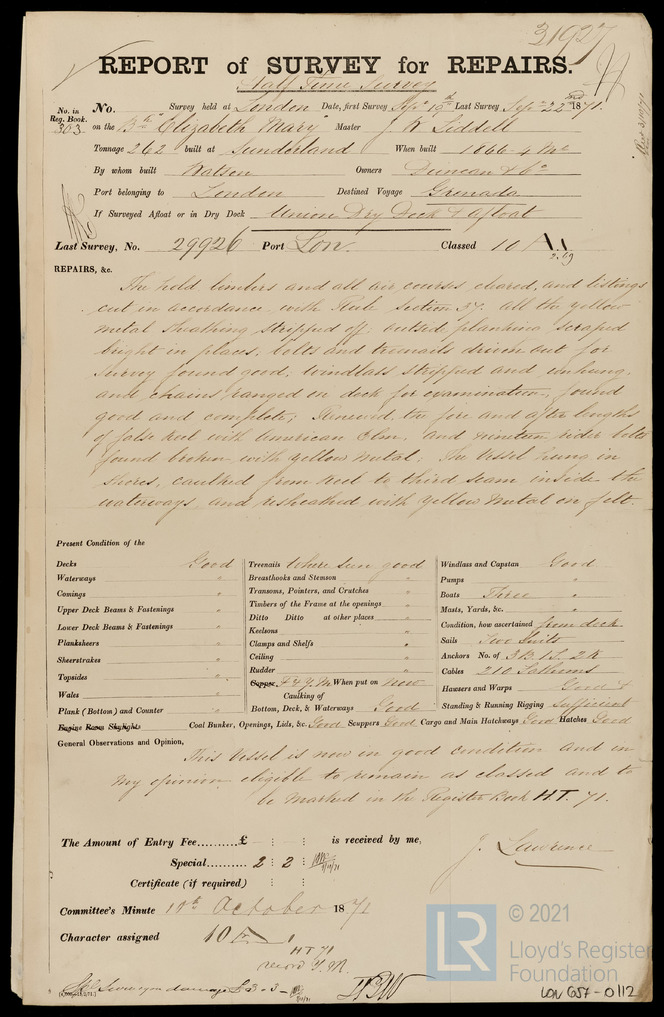 31927
REPORT of SURVEY for REPAIRS.
Half Time Survey
No. in Reg. Book. 303
No. Survey held at London Date, first Survey Sept 15th Last Survey Sept 22nd 1871.
on the Bk "Elizabeth Mary" Master J W Siddell
Tonnage 262 built at Sunderland When built 1866 - 4 Mo
By whom built Watson Owners Duncan & Co
Port belonging to London Destined Voyage Grenada
If Surveyed Afloat or in Dry Dock Union Dry Dock & afloat
Last Survey, No. 29926 Port Lon. Classed 10 A.1
2.69
REPAIRS, &c.
The hold timbers and all air courses cleared, and listings
cut in accordance with Rule Section 37. all the yellow
metal sheathing stripped off, outside planking scraped
bright in places, bolts and treenails driven out for
survey found good, windlass stripped and unhung,
and chains ranged on deck for examination, found
good and complete; Renewed the fore and after lengths
of false keel with American Elm, and nineteen rider bolts
found broken, with yellow metal; The vessel hung in
shores, caulked from keel to third seam inside the
waterways, and resheathed with yellow metal on felt.
Present Condition of the
Decks Good
Waterways "
Comings "
Upper Deck Beams & Fastenings "
Lower Deck Beams & Fastenings "
Planksheers "
Sheerstrakes "
Topsides "
Wales "
Plank (Bottom) and Counter "
Engine Room Skylights
Treenails Where seen good
Breasthooks and Stemson "
Transoms, Pointers, and Crutches "
Timbers of the Frame at the openings "
Ditto Ditto at other places "
Keelsons "
Clamps and Shelfs "
Ceiling "
Rudder "
Copper F & Y.M When put on New
Caulking of
Bottom, Deck, & Waterways Good
Windlass and Capstan Good
Pumps "
Boats Three "
Masts, Yards, &c. "
Condition, how ascertained from deck
Sails Two Suits
Anchors No. of 3B 1S, 2K
Cables 210 Fathoms
Hawsers and Warps Good &
Standing & Running Rigging Sufficient
Coal Bunker, Openings, Lids, &c. Good Scuppers Good Cargo and Main Hatchways Good Hatches Good
General Observations and Opinion,
This Vessel is now in good condition and in
my opinion eligible to remain as classed and to
be marked in the Register Book H.T. 71.
The Amount of Entry Fee.........£ : : is received by me,
Special.......... 2 : 2 :
J. Lawrence
Certificate (if required) : :
Committee's Minute 10th October 1871
Character assigned 10 A 1
HT 71
record Y.M.
Survey on damage £3-3-
© 2021
LR
Lloyd's Register
Foundation
LON 657-0112